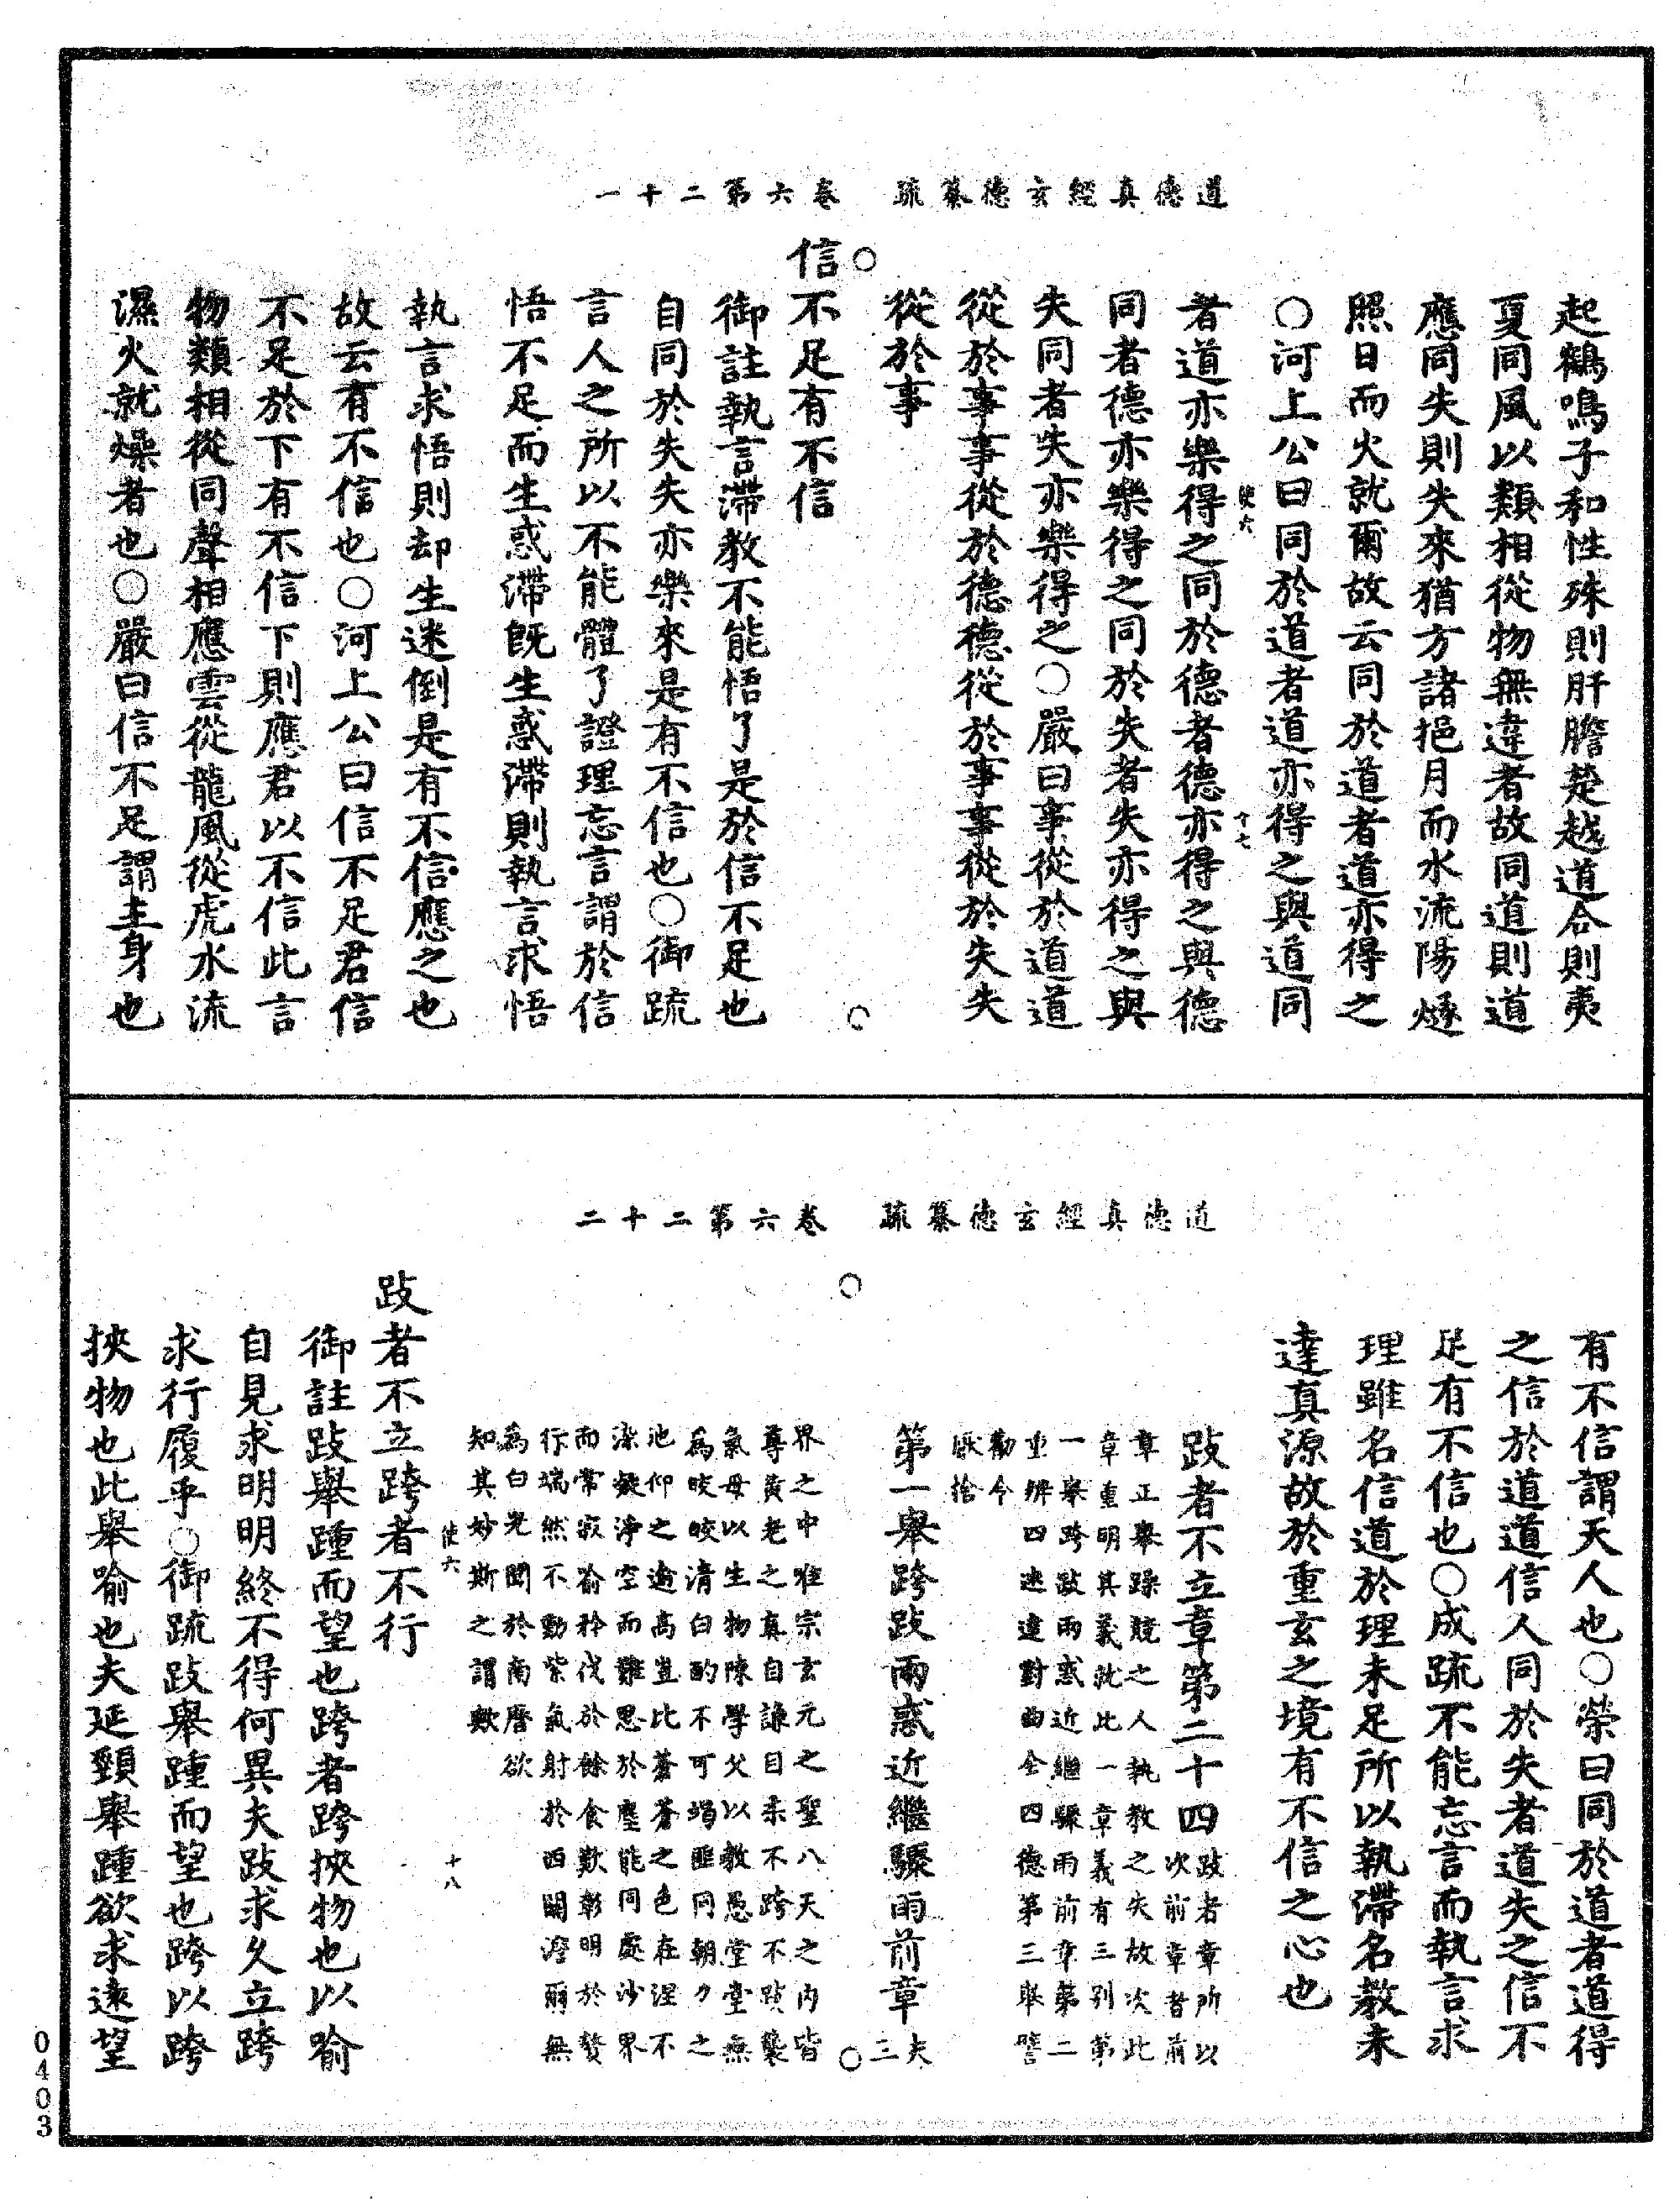 道德真經玄德纂疏　卷六第二十一
起鶴鳴子和性殊則肝膽楚越道合則夷
夏同風以類相從物無違者故同道則道
應同失則失來猶方諸挹月而水流陽燧
照日而火就爾故云同於道者道亦得之
〇河上公曰同於道者道亦得之與道同
使六　十七
者道亦樂得之同於德者德亦得之與德
同者德亦樂得之同於失者失亦得之與
失同者失亦樂得之〇嚴曰事從於道道
從於事事從於德德從於事事從於失失
從於事
信不足有不信
御註執言滯教不能悟了是於信不足也
自同於失失亦樂來是有不信也〇御疏
言人之所以不能體了證理忘言謂於信
悟不足而生惑滯旣生惑滯則執言求悟
執言求悟則却生迷倒是有不信應之也
故云有不信也〇河上公曰信不足君信
不足於下有不信下則應君以不信此言
物類相從同聲相應雲從龍風從虎水流
濕火就燥者也〇嚴曰信不足謂主身也
道德真經玄德纂疏　卷六第二十二
有不信謂天人也〇榮曰同於道者道得
之信於道道信人同於失者道失之信不
足有不信也〇成疏不能忘言而執言求
理雖名信道於理未足所以執滯名教未
達真源故於重玄之境有不信之心也
跂者不立章第二十四
跂者章所以
次前章者前
章正舉躁競之人執教之失故次此
章重明其義就此一章義有三別第
一舉跨跂兩惑近繼驟雨前章第二
重辨四迷違對曲全四德第三舉譬
勸令
厭捨
第一舉跨跂兩惑近繼驟雨前章
夫
三
界之中唯宗玄元之聖八天之內皆
尊黃老之真自謙自柔不跨不跂襲
氣母以生物陳學父以教愚堂堂無
爲皎皎清白酌不可竭匪同朝夕之
池仰之逾高豈比蒼蒼之色在涅不
染凝淨空而難思於塵能同處沙界
而常寂喻矜伐於餘食歎彰明於贅
行端然不動紫氣射於西關湛爾無
爲白光聞於南曆欲
知其妙斯之謂歟
使六　十八
跂者不立跨者不行
御註跂舉踵而望也跨者跨挾物也以喻
自見求明明終不得何異夫跂求久立跨
求行履乎〇御疏跂舉踵而望也跨以跨
挾物也此舉喻也夫延頸舉踵欲求遠望
0403